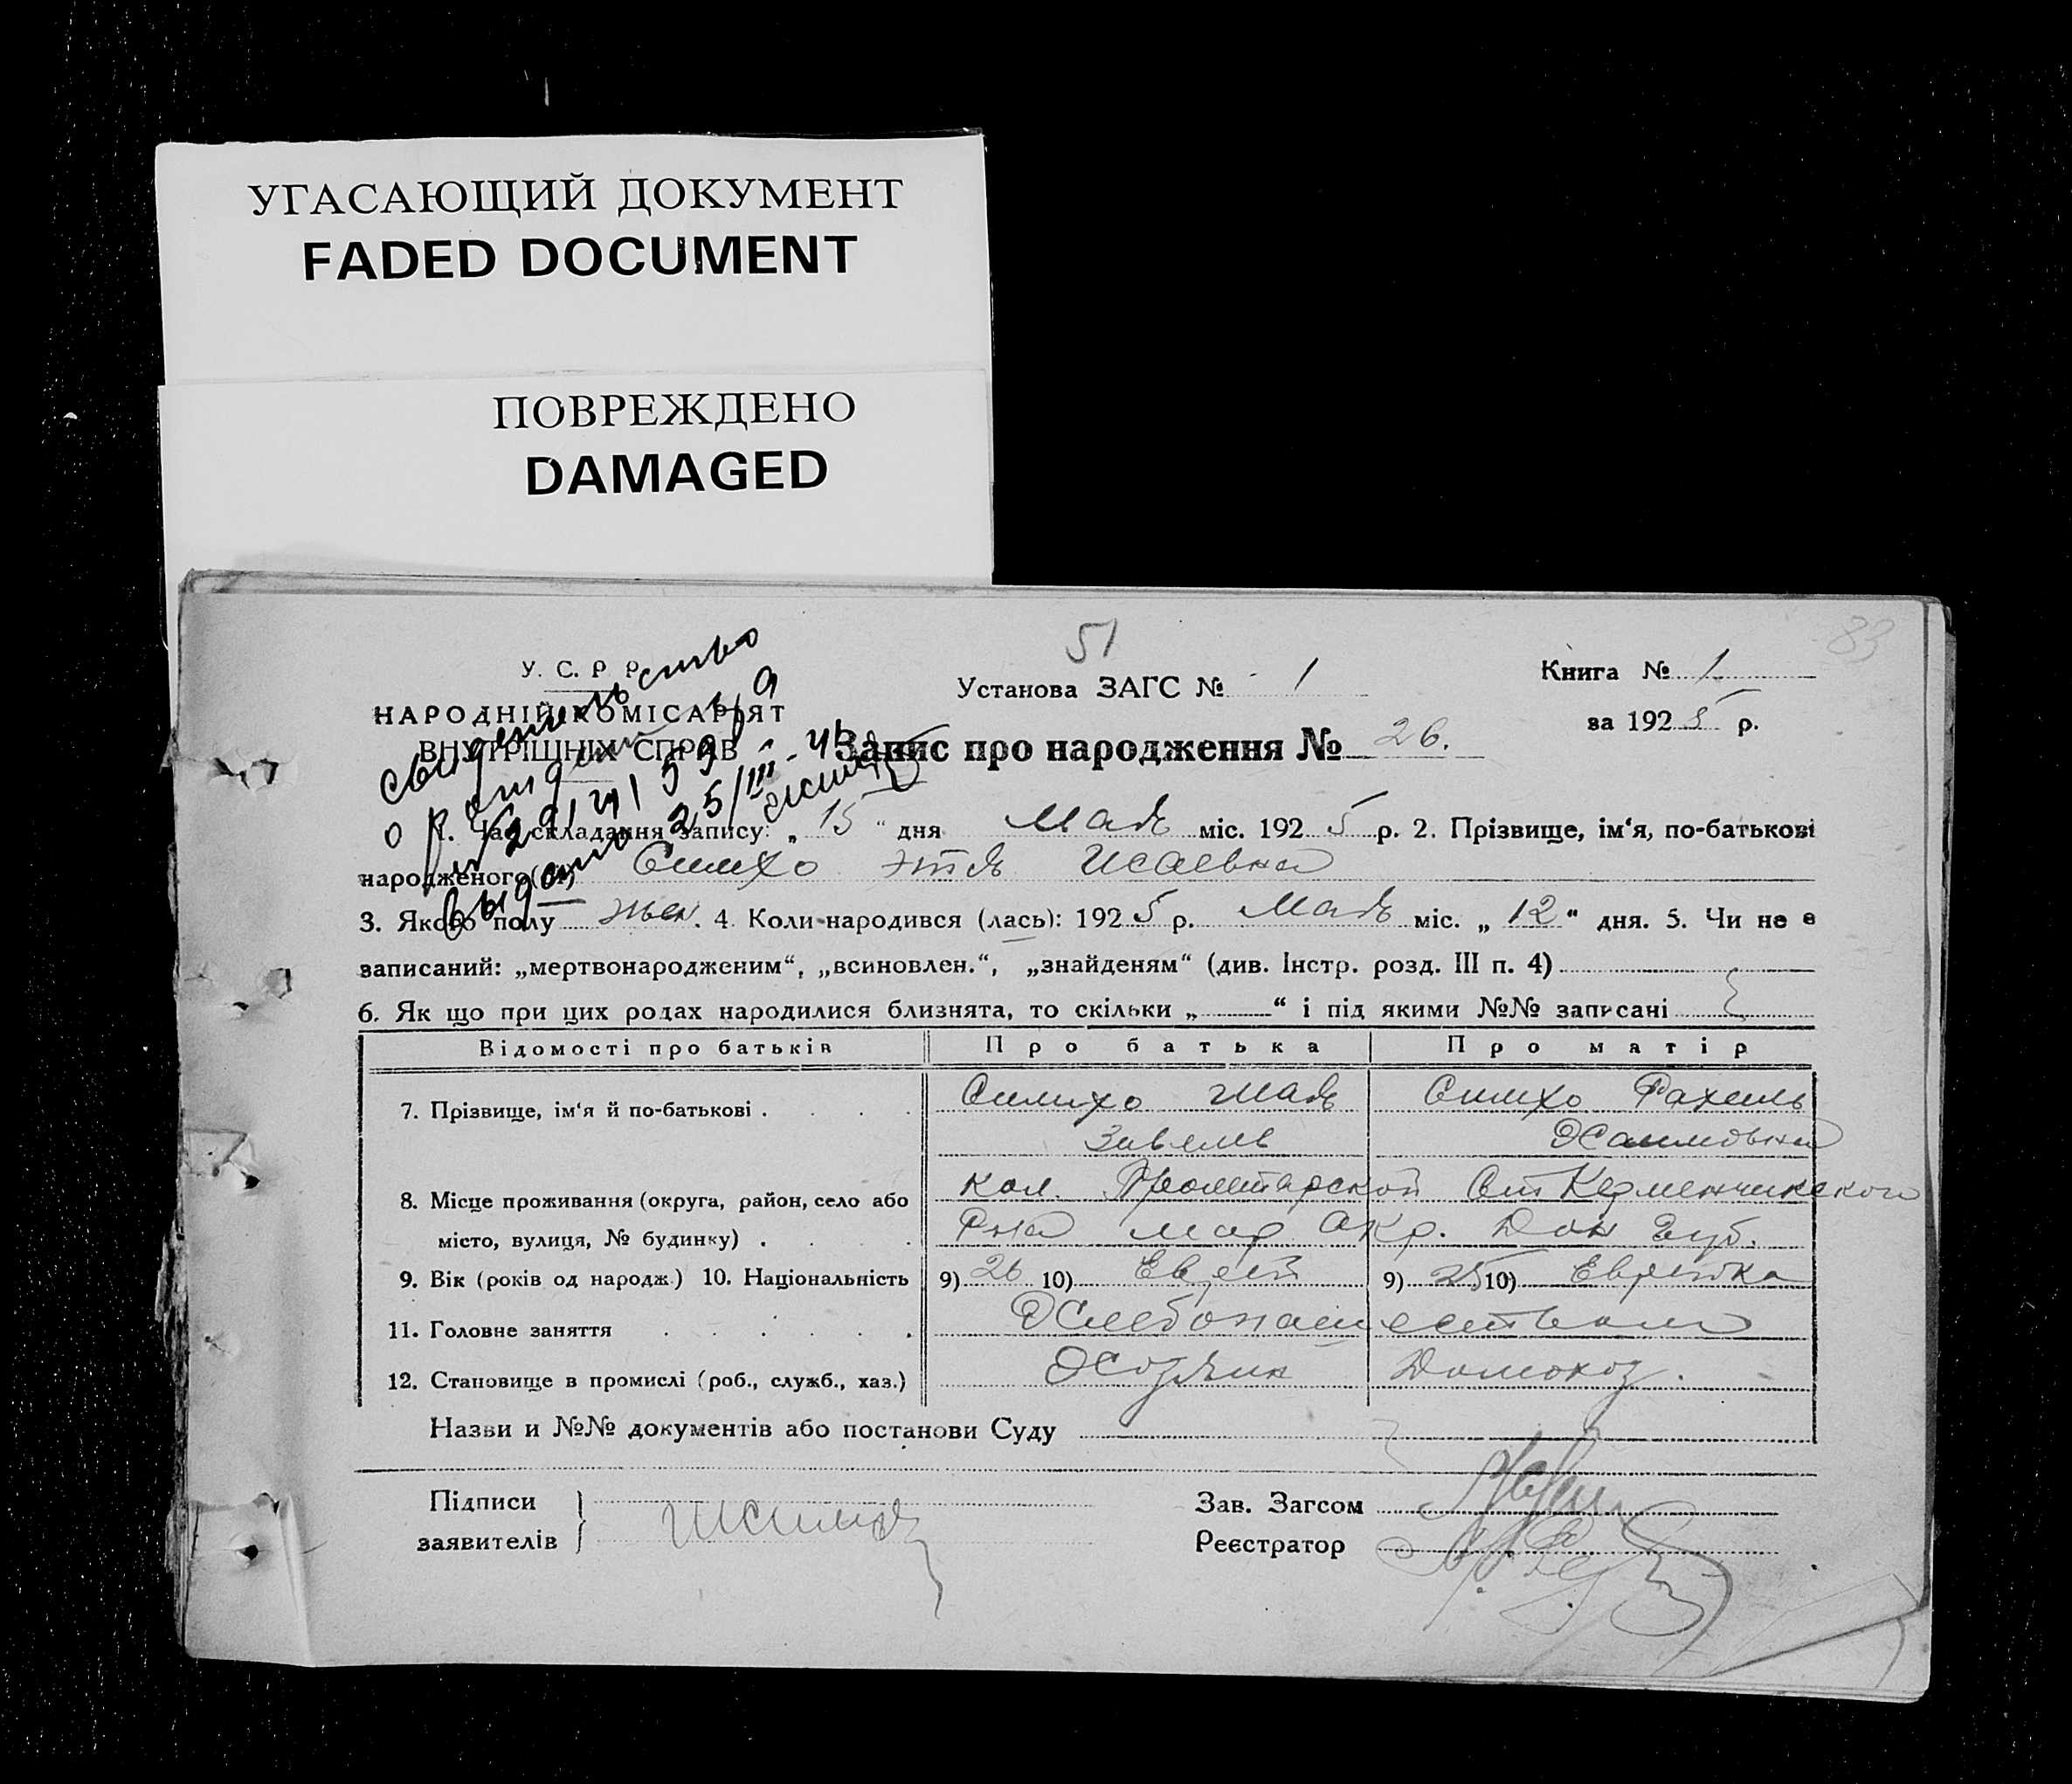 УГАСАЮЩИЙ ДОКУМЕНТ
FADED DOCUMENT
ПОВРЕЖДЕНО
DAMAGED
51
83
У. С. Р. Р.
НАРОДНІЙ КОМІСАРІЯТ
ВНУТРІШНІХ СПРАВ
свидетельство
о
выдано 25/III-
Установа ЗАГС № 1
Книга № 1
за 1925 р.
Запис про народження № 26.
1. Час складання запису: „15“ дня Мая міс. 1925 р. 2. Прізвище, ім‘я, по-батькові
народженого(ої) Симхо Этя Исаевна
3. Якого полу жен. 4. Коли народився (лась): 1925 р. Мая міс. „12“ дня. 5. Чи не є
записаний: „мертвонародженим“, „всиновлен.“, „знайденям“ (див. Інстр. розд. III п. 4)
6. Як що при цих родах народилися близнята, то скільки „ “ і під якими №№ записані
Відомості про батьків Про батька Про матір
7. Прізвище, ім‘я й по-батькові . Симхо Симхо Рахиль
8. Місце проживання (округа, район, село або кол. Пролетарской Керменчикского
місто, вулиця, № будинку) . Рна Мар Окр. Дон Губ.
9. Вік (років од народж.) 10. Національність 9) 26 10) Еврей 9) 25 10) Еврейка
11. Головне заняття Хлебопашеством
12. Становище в промислі (роб., служб., хаз.) Хозяин Домохоз.
Назви и №№ документів або постанови Суду
Підписи
заявителів
Зав. Загсом
Реєстратор